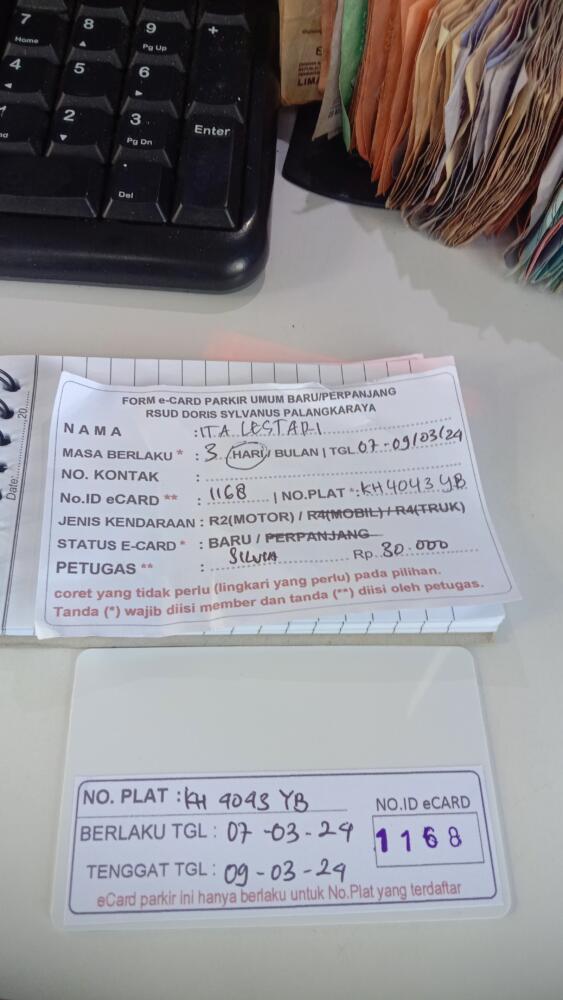 7
Home
8
9
Pg Up
+
4
5
6
2
3
Pg Dn
Enter
Del
LIMA
Date:
20
FORM e-CARD PARKIR UMUM BARU/PERPANJANG
RSUD DORIS SYLVANUS PALANGKARAYA
NAMA : ITA LESTARI
MASA BERLAKU * : 3 HARI / BULAN | TGL 07-09/03/24
NO. KONTAK :
No.ID eCARD ** : 1168 | NO.PLAT * : KH 4043 YB
JENIS KENDARAAN : R2(MOTOR) / R4(MOBIL) / R4(TRUK)
STATUS E-CARD * : BARU / PERPANJANG
PETUGAS ** : SILVIA Rp. 30.000
coret yang tidak perlu (lingkari yang perlu) pada pilihan.
Tanda (*) wajib diisi member dan tanda (**) diisi oleh petugas.
NO. PLAT : KH 4043 YB
NO.ID eCARD
BERLAKU TGL : 07-03-24
1168
TENGGAT TGL : 09-03-24
eCard parkir ini hanya berlaku untuk No.Plat yang terdaftar